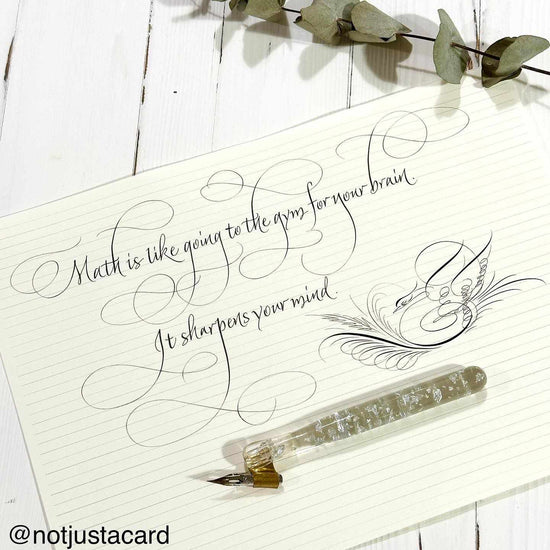 Math is like going to the gym for your brain.
It sharpens your mind.
@notjustacard